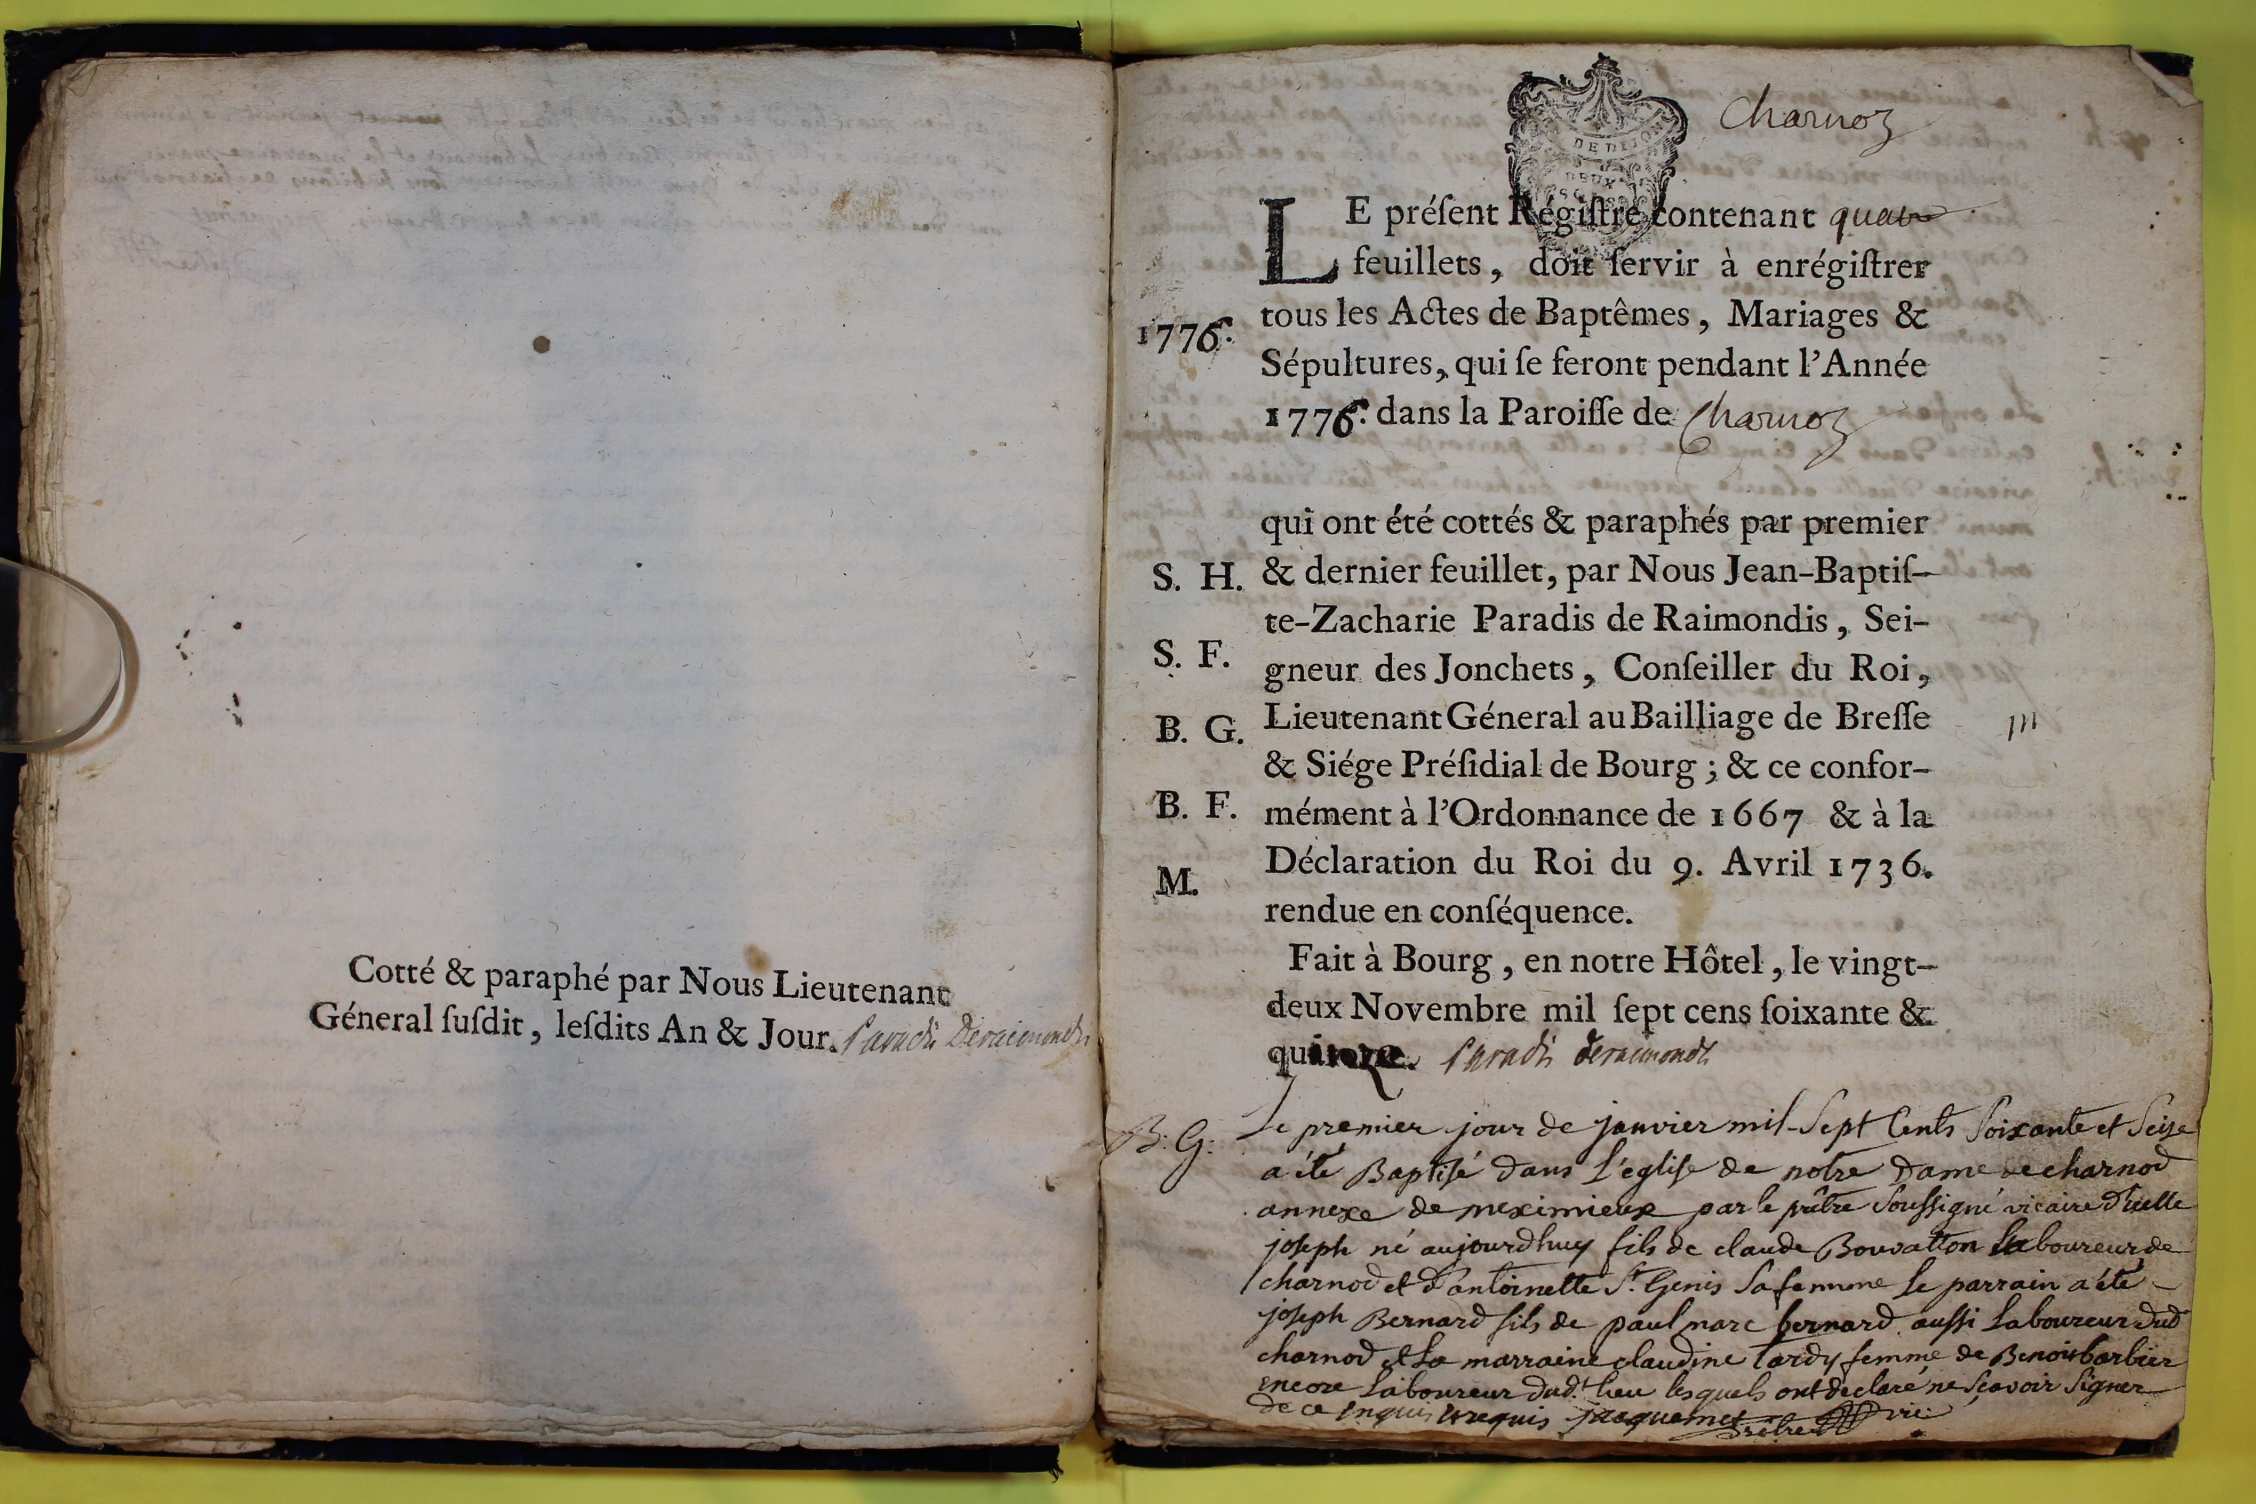 Cotté & paraphé par Nous Lieutenant
Géneral ſuſdit, leſdits An & Jour. Paradis Deraimondis
Charnoz
DE DIJON
DEUX
LE préſent Régiſtre contenant quatre
feuillets, doit ſervir à enrégiſtrer
tous les Actes de Baptêmes, Mariages &
1776.
Sépultures, qui ſe feront pendant l'Année
1776. dans la Paroiſſe de Charnoz
qui ont été cottés & paraphés par premier
S. H. & dernier feuillet, par Nous Jean-Baptiſ-
te-Zacharie Paradis de Raimondis, Sei-
S. F. gneur des Jonchets, Conſeiller du Roi,
B. G. Lieutenant Géneral au Bailliage de Breſſe
& Siége Préſidial de Bourg ; & ce confor-
B. F. mément à l'Ordonnance de 1667 & à la
Déclaration du Roi du 9. Avril 1736.
M. rendue en conſéquence.
Fait à Bourg, en notre Hôtel, le vingt-
deux Novembre mil ſept cens ſoixante &
quinze. Paradis deraimondis
B. G. Le premier jour de janvier mil-Sept Cents Soixante et Seize
a été Baptisé dans L'eglise de notre dame de charnod
annexe de meximieux par le prêtre Soussigné vicaire d'icelle
joseph né aujourdhuy fils de claude Bouvatton Laboureur de
charnod et d'antoinette St Genis Sa femme Le parrain a été
joseph Bernard fils de paul marc bernard aussi Laboureur dud
charnod et La marraine claudine tardy femme de Benoit barbier
encore Laboureur dud.t lieu lesquels ont declaré ne sçavoir Signer
de ce enquis et requis jacquemet prêtre vic.